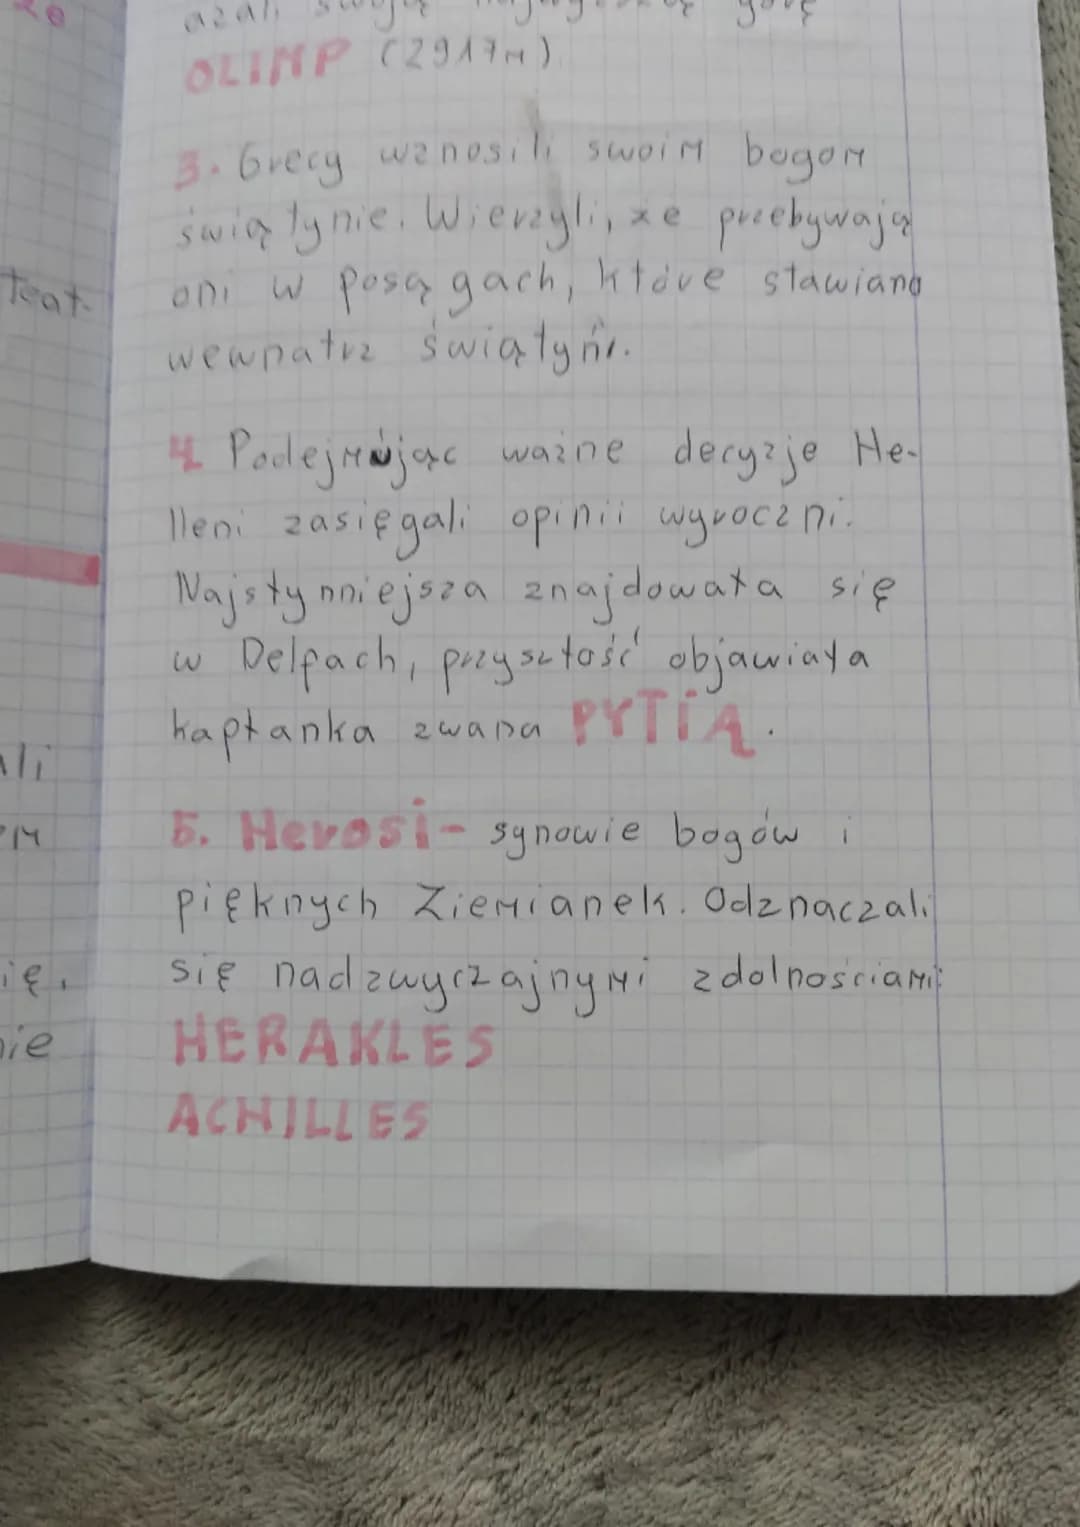 azali swoją najwyższą górę
OLIMP (2917m)
3. Grecy wznosili swoim bogom
świątynie. Wierzyli, że przebywają
oni w posągach, które stawiano
wewnatrz świątyni.
4 Podejmując ważne decyzje He-
lleni zasięgali opinii wyroczni.
Najsłynniejsza znajdowała się
w Delfach, przyszłość objawiała
kapłanka zwana PYTIĄ.
5. Herosi- synowie bogów i
pięknych Ziemianek. Odznaczali
się nadzwyczajnymi zdolnościami:
HERAKLES
ACHILLES
teat-
ali
em
ię.
nie